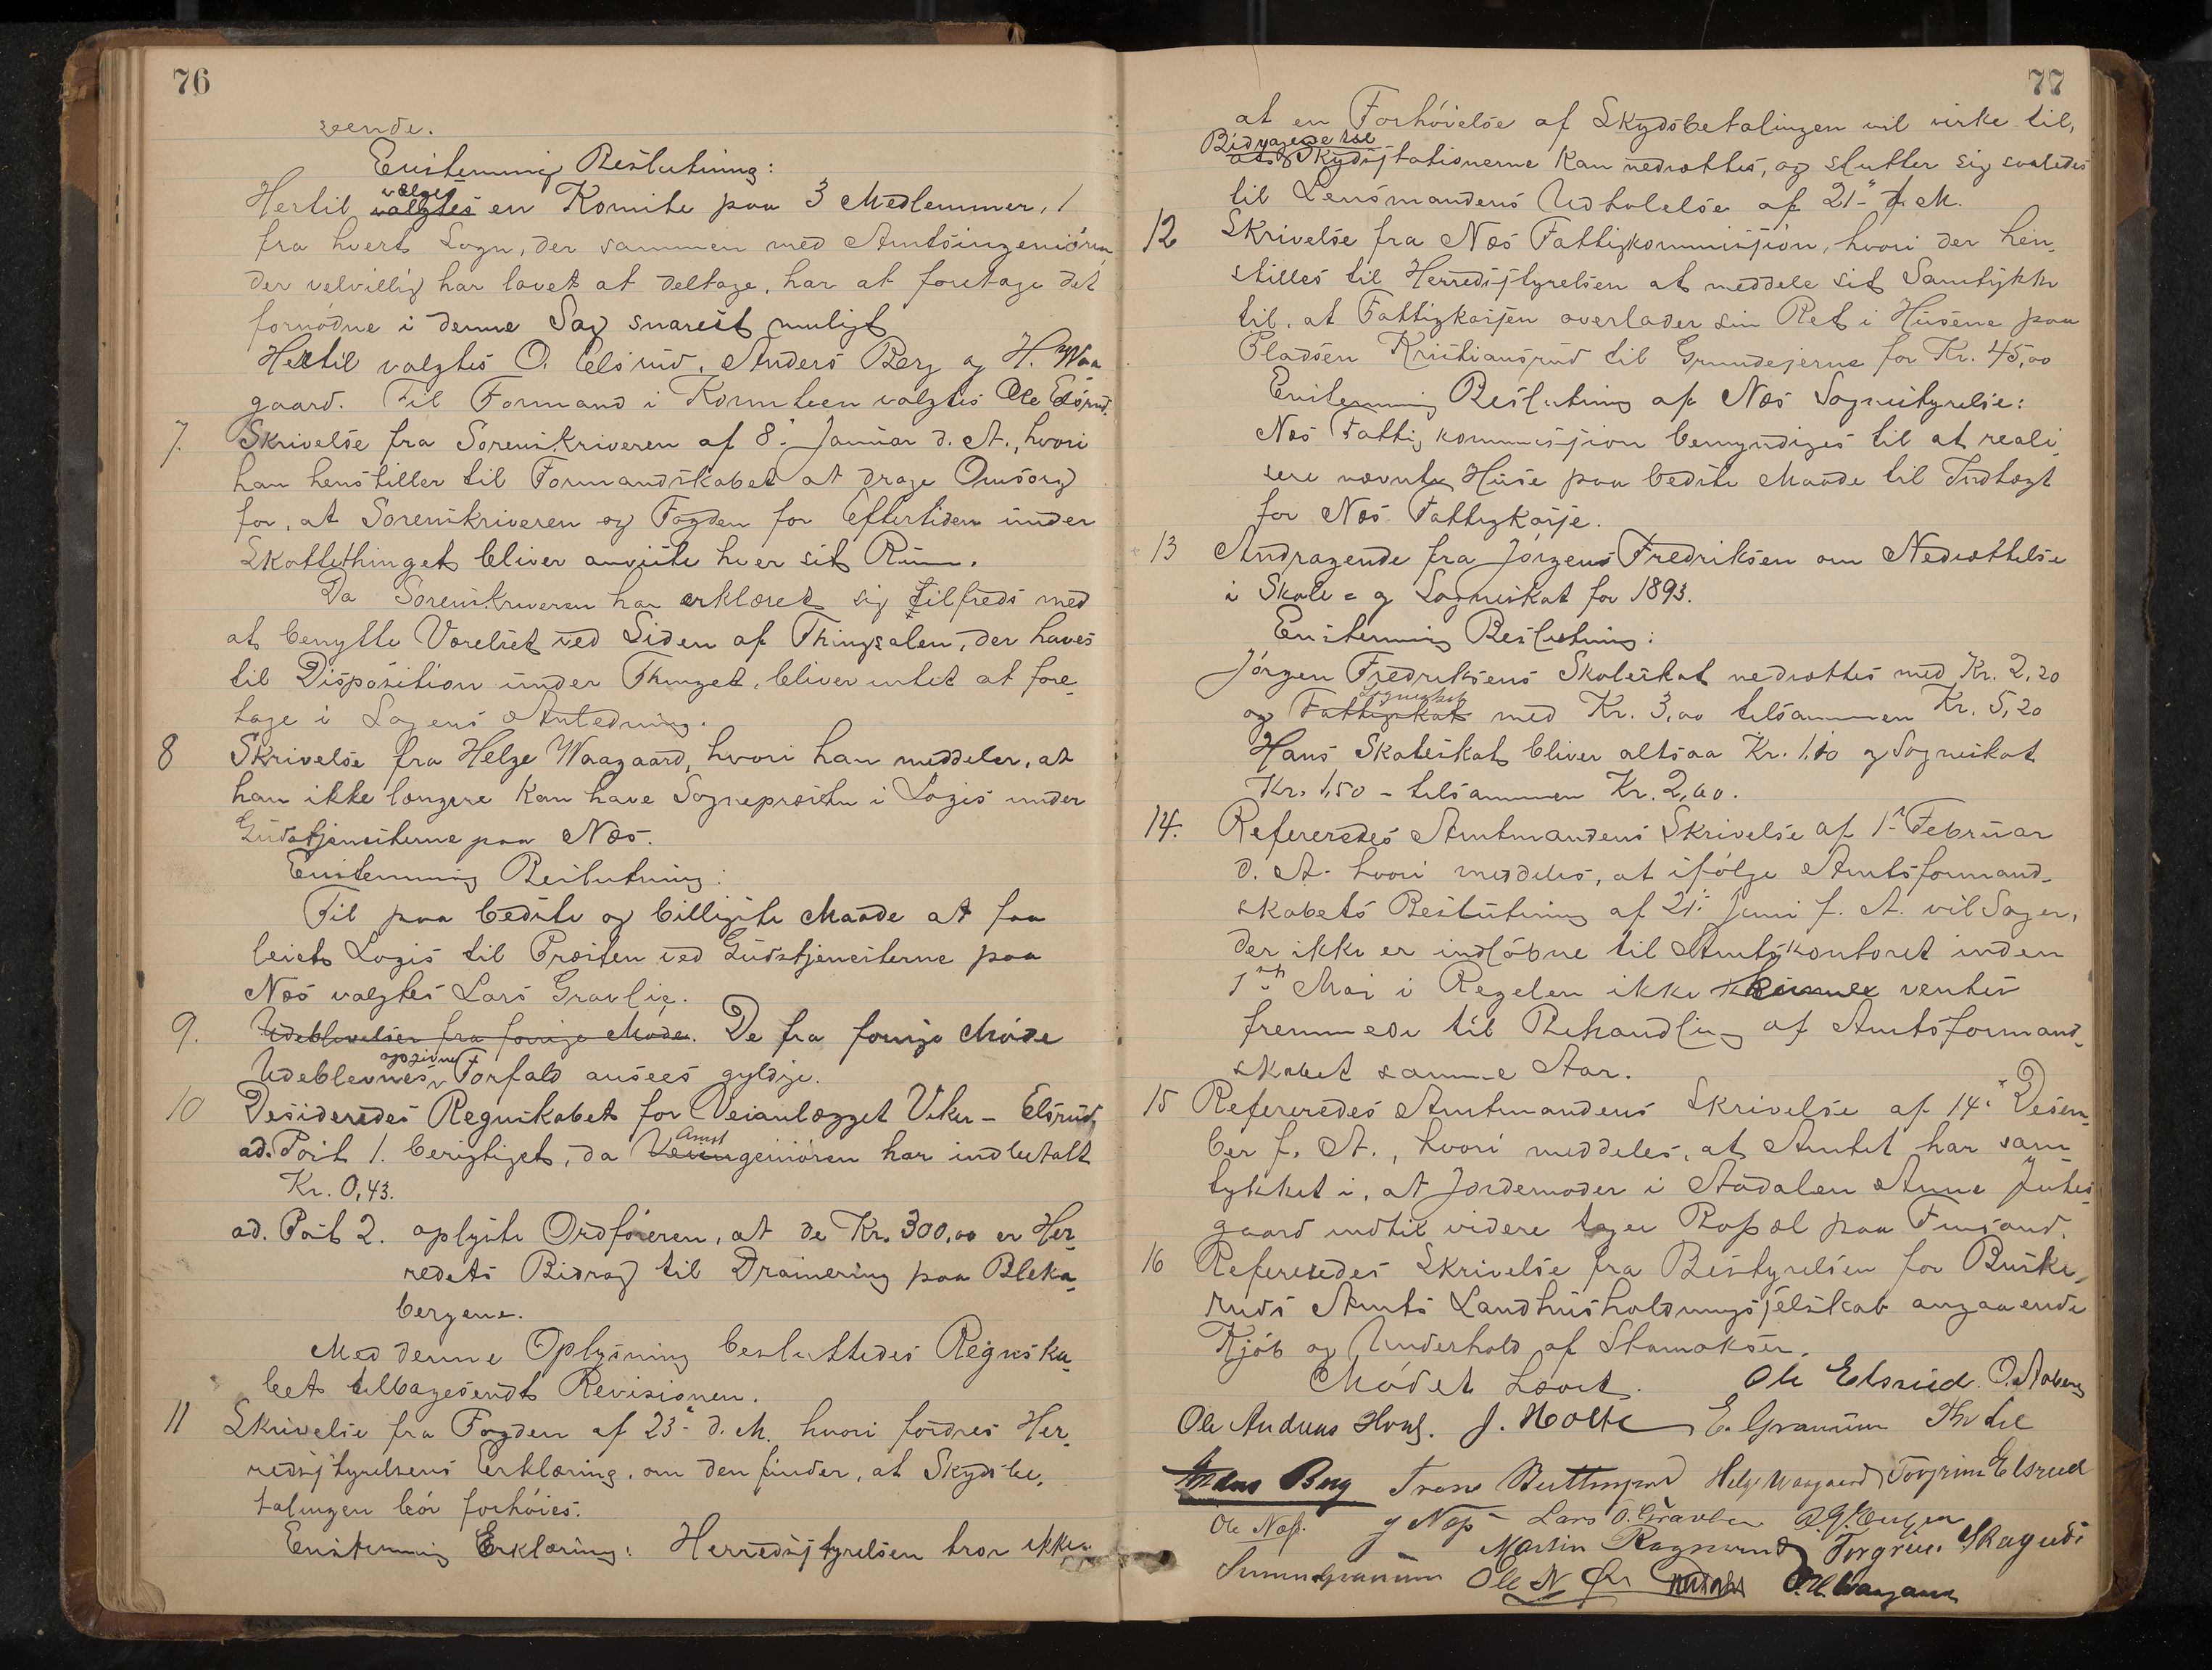 76
seende.
Enstemmig Beslutning:
Hertil valgtes vælges en Komite paa 3 Medlemmer, 1
fra hvert Sogn, der sammen med Amtsingeniøren,
der velvillig har lovet at deltage, har at foretage det
fornødne i denne Sag snarest muligt
Hertil valgtes O. Elsrud, Anders Berg og H. Waa
gaard. Til Formand i Komiteen valgtes Ole Elsrud.
7. Skrivelse fra Sorenskriveren af 8de Januar d. A., hvori
han henstiller til Formandskabet at drage Omsorg
for, at Sorenskriveren og Fogden for Eftertiden under
Skattethinget bliver anviste hver sit Rum.
Da Sorenskriveren har erklæret sig tilfreds med
at benytte Værelset ved Siden af Thingsalen, der haves
til Disposition under Thinget, bliver intet at fore-
tage i Sagens Anledning.
8 Skrivelse fra Helge Waagaard, hvori han meddeler, at
han ikke længere kan have Sognepræsten i Logis under
Gudstjenesterne paa Næs.
Enstemmig Beslutning:
Til paa bedste og billigste Maade at faa
leiet Logis til Præsten ved Gudstjenesterne paa
Næs valgtes Lars Gravlie.
9. Udeblevelser fra forrige Møde. De fra forrige Møde
Udeblevnes opgivne Forfald ansees gyldige.
10 Desideredes Regnskabet for Veianlægget Viker - Elsrud,
ad. Post 1. berigtiget, da Amtsingeniøren har indbetalt
Kr. 0,43.
ad. Post 2. oplyste Ordføreren, at de Kr. 300,00 er Her-
redets Bidrag til Drainering paa Bleka-
bergene.
Med denne Oplysning besluttedes Regnska-
bet tilbagesendt Revisionen.
11 Skrivelse fra Fogden af 23de d. M. hvori fordres Her-
redsstyrelsens Erklæring, om den finder, at Skydsbe-
talingen bør forhøies.
Enstemmig Erklæring: Herredsstyrelsen tror ikke
77
at en Forhøielse af Skydsbetalingen vil virke til,
at Bidragene til Skydsstationerne kan nedsættes, og slutter sig saaledes
til Lensmandens Udtalelse af 21de d. M.
12 Skrivelse fra Næs Fattigkommission, hvori der hen-
stilles til Herredsstyrelsen at meddele sit Samtykke
til, at Fattigkassen overlader sin Ret i Husene paa
Pladsen Kristiansrud til Grundejerne for Kr. 45,00
Enstemmig Beslutning af Næs Sognestyrelse:
Næs Fattigkommission bemyndiges til at reali-
sere nævnte Huse paa bedste Maade til Indtægt
for Næs Fattigkasse.
13 Andragende fra Jørgens Fredriksen om Nedsættelse
i Skole= og Sogneskat for 1893.
Enstemmig Beslutning:
Jørgen Fredriksens Skoleskat nedsættes med Kr. 2,20
og Fattigskat Sogneskat med Kr. 3,00 tilsammen Kr. 5,20
Hans Skoleskat bliver altsaa Kr. 1,10 og Sogneskat
Kr. 1,50 - tilsammen Kr. 2,60.
14. Refereredes Amtmandens Skrivelse af 1ste Februar
d. A. hvori meddeles, at ifølge Amtsformand-
skabets Beslutning af 21de Juni f. A. vil Sager,
der ikke er indløbne til Amtskontoret inden
1ste Mai i Regelen ikke kunne ventes
fremmede til Behandling af Amtsformand-
skabet samme Aar.
15 Refereredes Amtmandens Skrivelse af 14de Desem-
ber f. A., hvori meddeles, at Amtet har sam-
tykket i, at Jordemoder i Aadalen Anne Juhls-
gaard indtil videre tager Bopæl paa Finsand.
16 Refereredes Skrivelse fra Bestyrelsen for Buske-
ruds Amts Landhusholdningsselskab angaaende
Kjøb og Underhold af Stamokser.
Mødet hævet. Ole Elsrud.
Ole Andreas J. Holte E. Granum
Anders Berg Helge Waagaard Torgrim Elsrud
Ole Næss. Lars O. Gravlie
Martin Ragnsrud Torgrim Skagnæs
Ole N